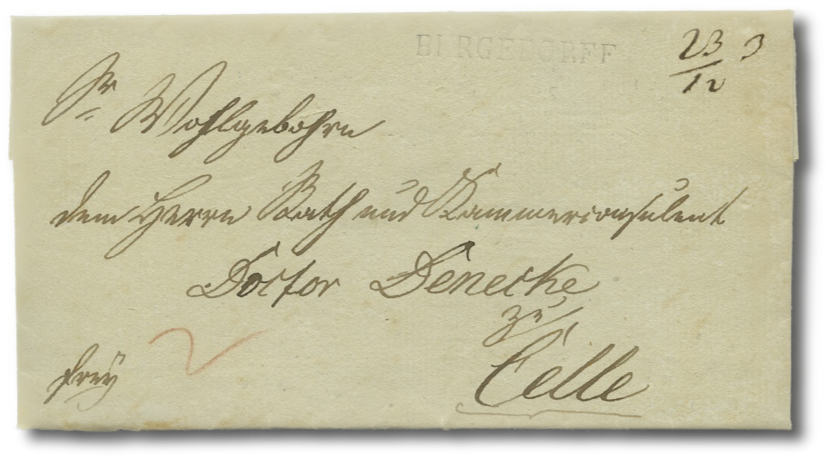 BURGEDORFF
23/12 3
Sr Wohlgebohrn
dem Herrn Rath und Kammerconsulent
Doctor Denecke
zu
Celle
frey